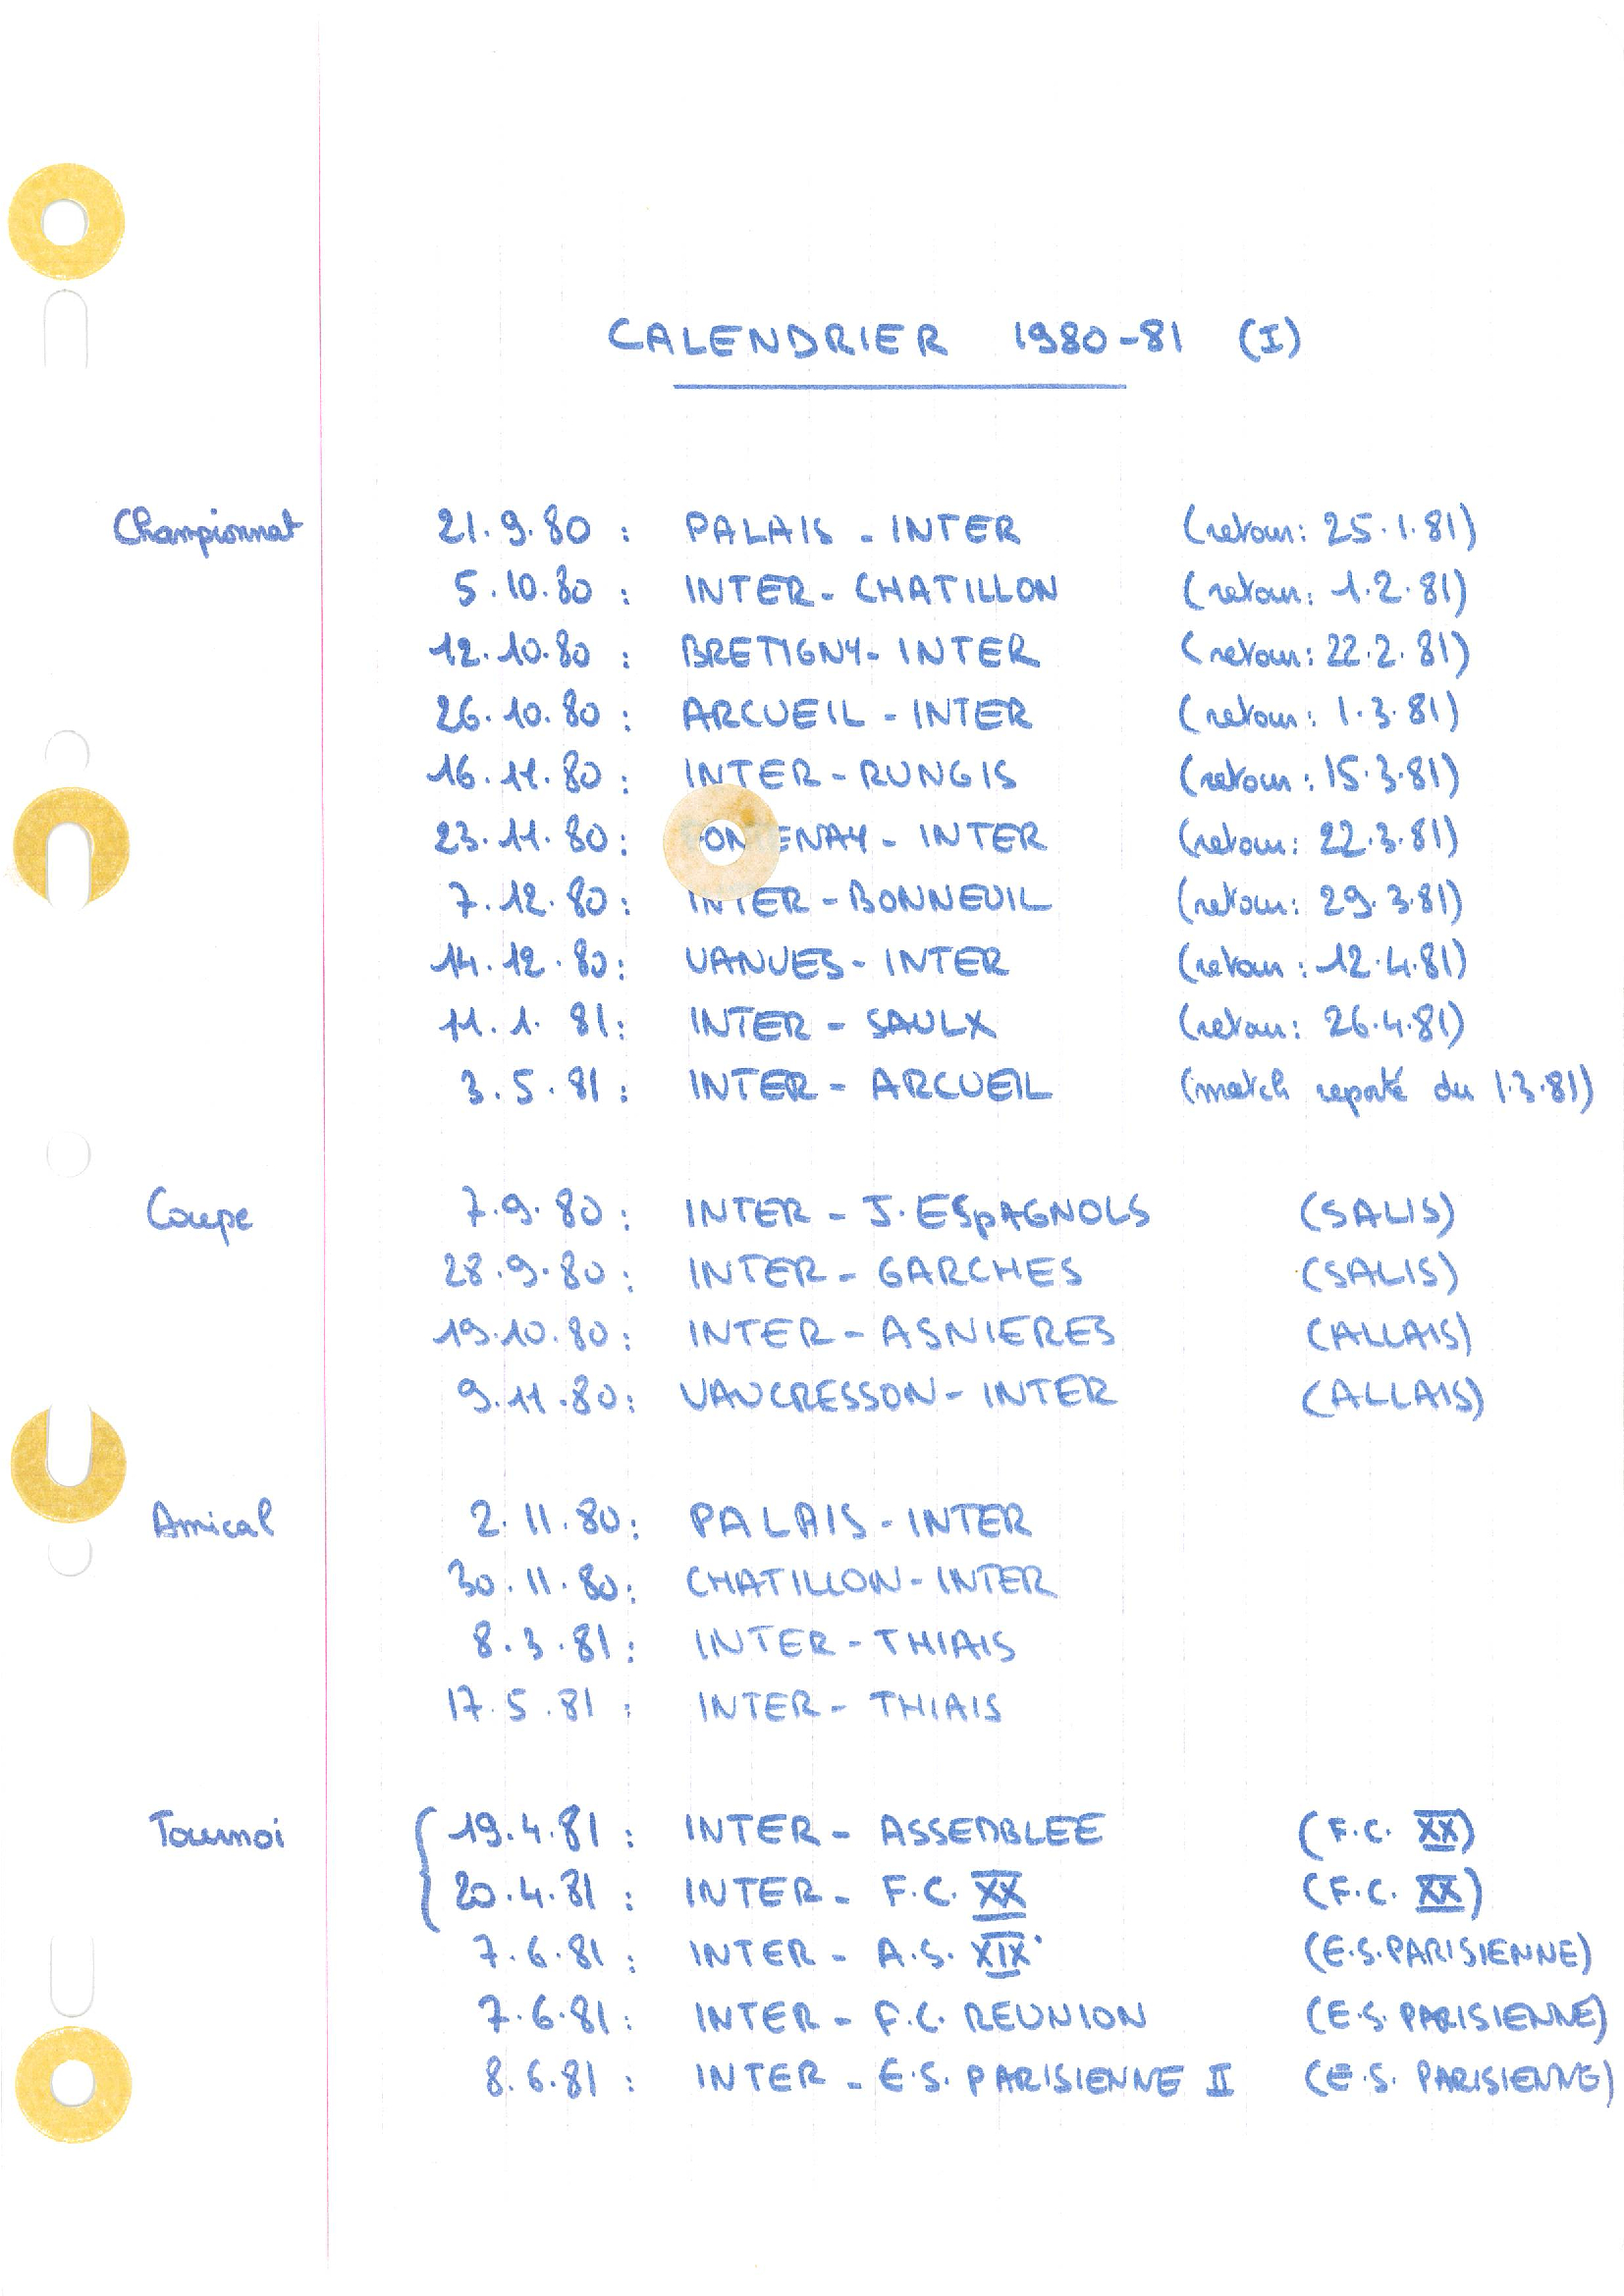 CALENDRIER 1980-81 (I)
Championnat 21.9.80 : PALAIS - INTER (retour: 25.1.81)
5.10.80 : INTER - CHATILLON (retour: 1.2.81)
12.10.80 : BRETIGNY - INTER (retour: 22.2.81)
26.10.80 : ARCUEIL - INTER (retour: 1.3.81)
16.11.80 : INTER - RUNGIS (retour: 15.3.81)
23.11.80 : FONTENAY - INTER (retour: 22.3.81)
7.12.80 : INTER - BONNEUIL (retour: 29.3.81)
14.12.80 : VANVES - INTER (retour: 12.4.81)
11.1.81 : INTER - SAULX (retour: 26.4.81)
3.5.81 : INTER - ARCUEIL (match reporté du 1.3.81)
Coupe 7.9.80 : INTER - J. ESPAGNOLS (SALIS)
28.9.80 : INTER - GARCHES (SALIS)
19.10.80 : INTER - ASNIERES (ALLAIS)
9.11.80 : VAUCRESSON - INTER (ALLAIS)
Amical 2.11.80 : PALAIS - INTER
30.11.80 : CHATILLON - INTER
8.3.81 : INTER - THIAIS
17.5.81 : INTER - THIAIS
Tournoi 19.4.81 : INTER - ASSEMBLEE (F.C. XX)
20.4.81 : INTER - F.C. XX (F.C. XX)
7.6.81 : INTER - A.S. XIX (E.S. PARISIENNE)
7.6.81 : INTER - F.C. REUNION (E.S. PARISIENNE)
8.6.81 : INTER - E.S. PARISIENNE II (E.S. PARISIENNE)